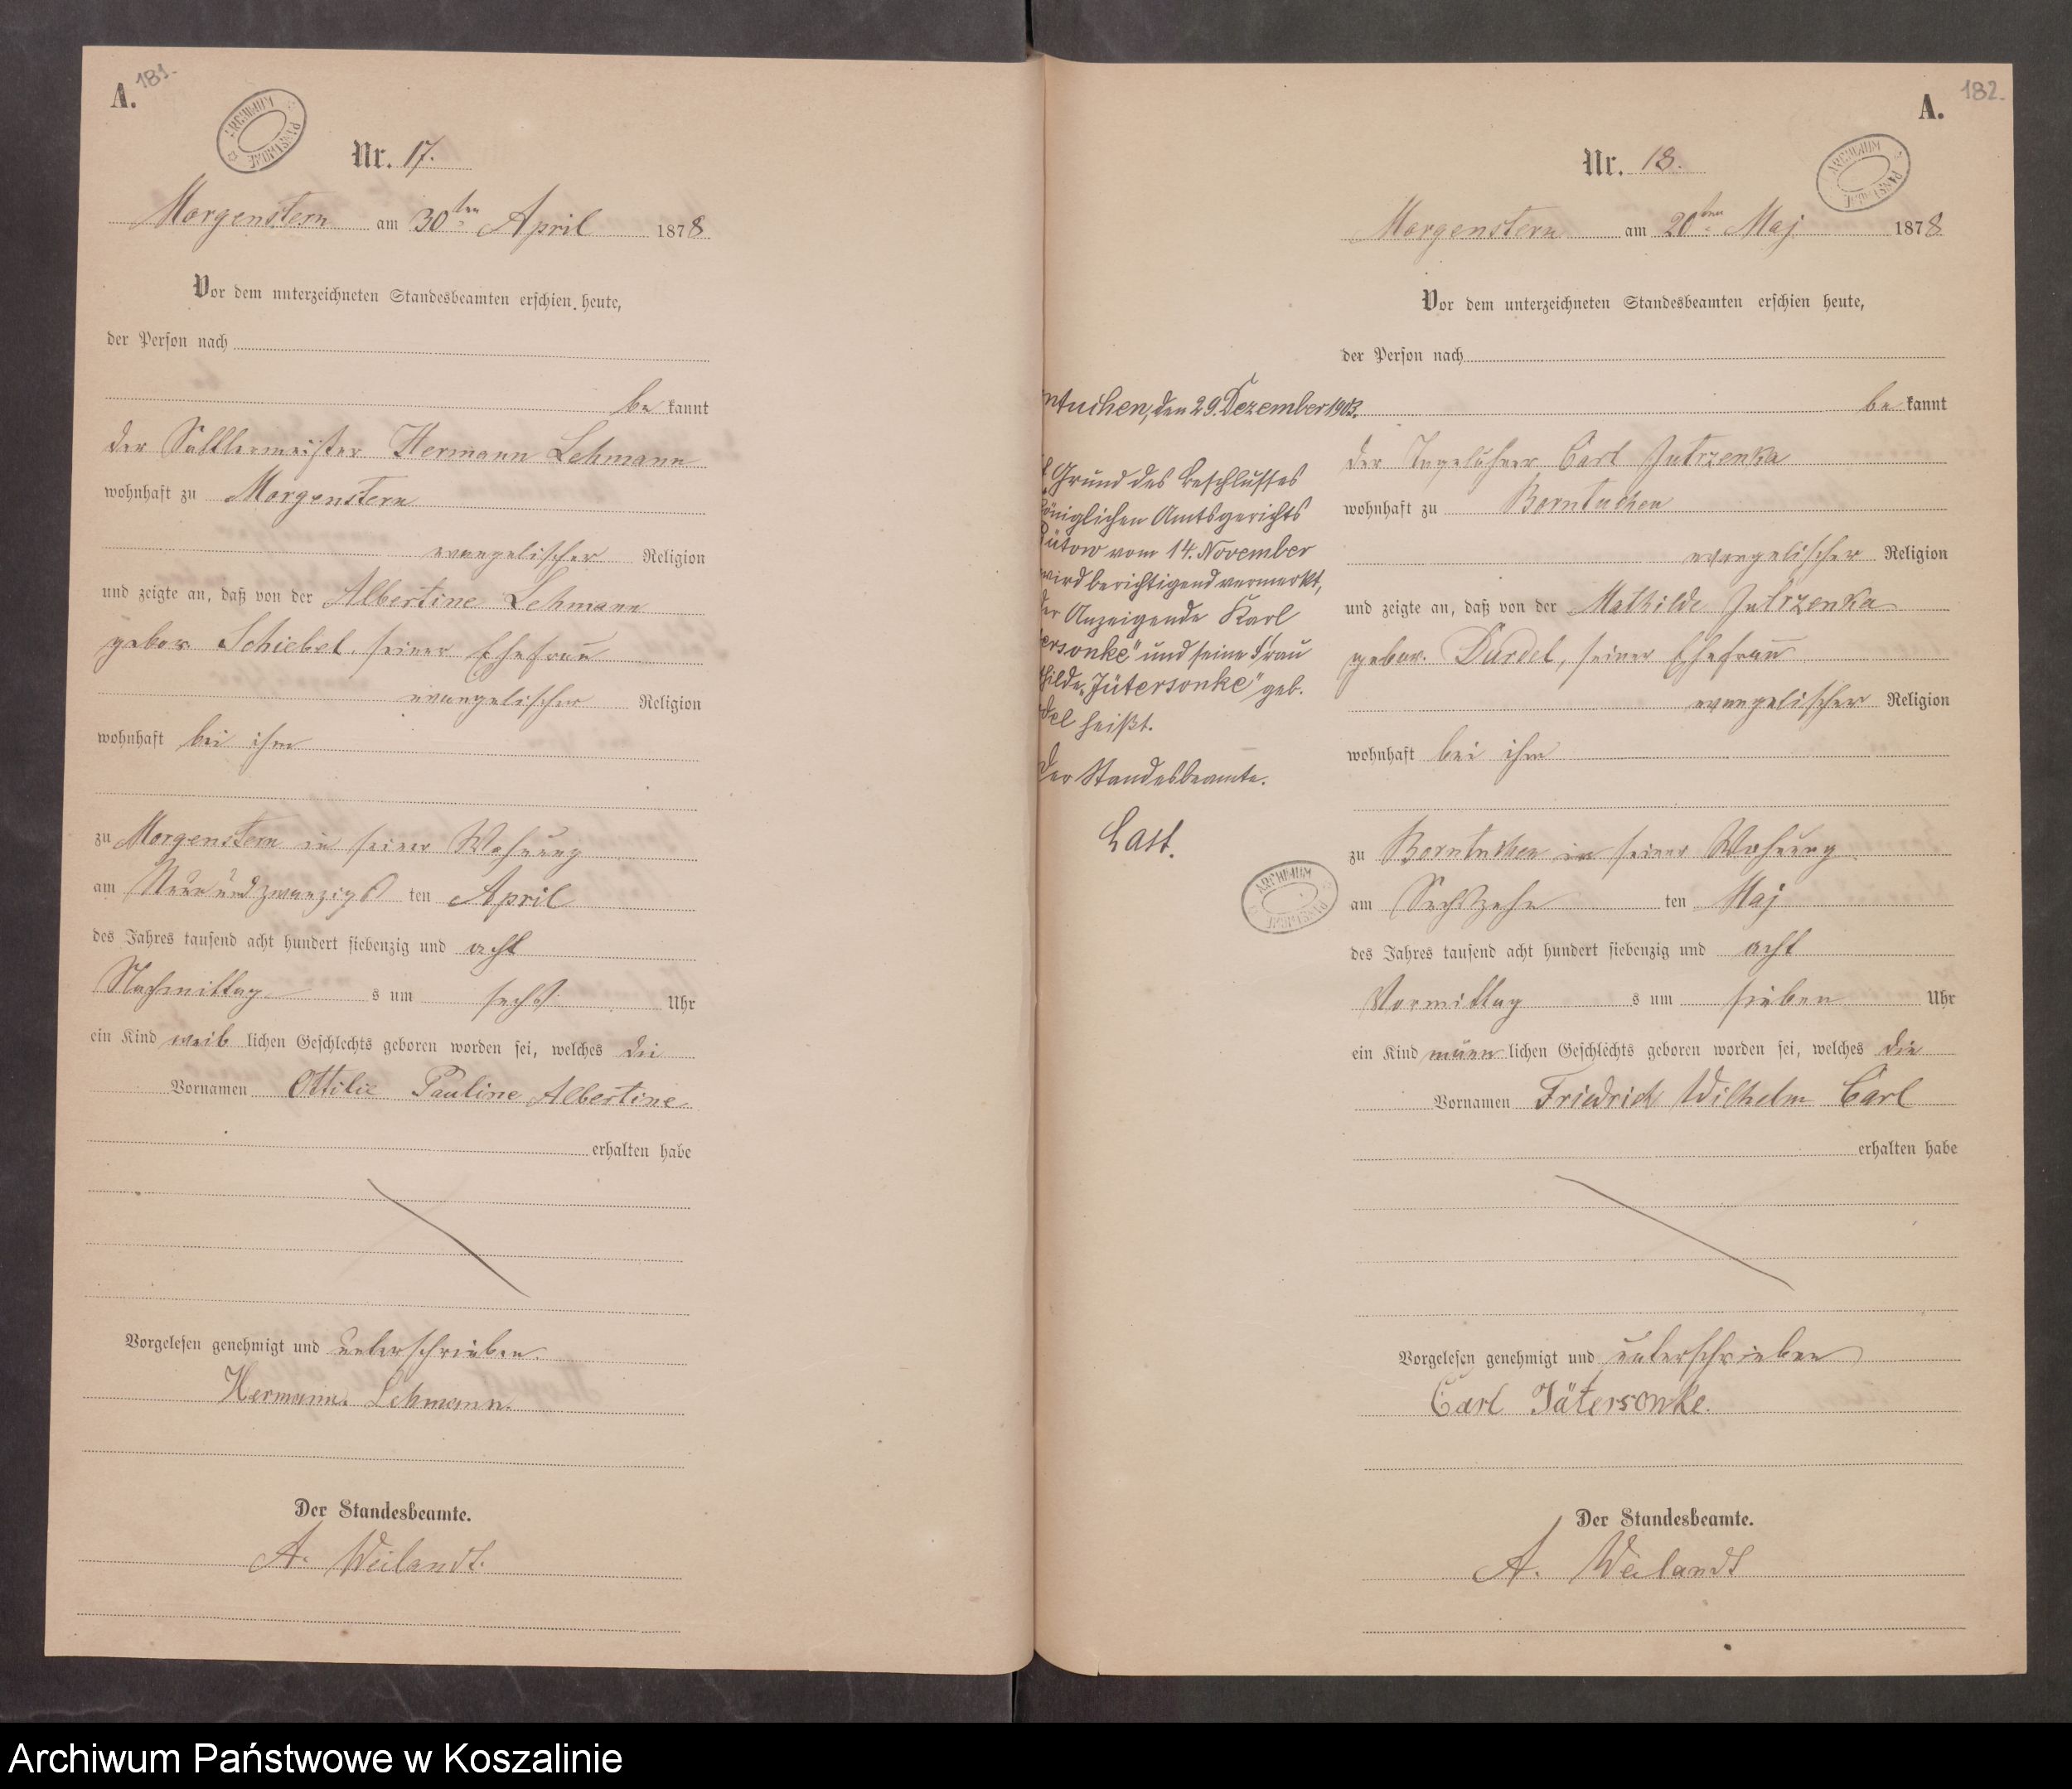 A.
181.
ARCHIWUM PAŃSTWOWE
Nr. 17.
Morgenstern am 30ten April 1878
Vor dem unterzeichneten Standesbeamten erschien heute,
der Person nach
be kannt
der Sattlermeister Hermann Lehmann
wohnhaft zu Morgenstern
evangelischer Religion
und zeigte an, daß von der Albertine Lehmann
gebor. Schiebel, seiner Ehefrau
evangelischer Religion
wohnhaft bei ihm
zu Morgenstern in seiner Wohnung
am Neunundzwanzigs ten April
des Jahres tausend acht hundert siebenzig und acht
Nachmittag s um sechs Uhr
ein Kind weib lichen Geschlechts geboren worden sei, welches die
Vornamen Ottilie Pauline Albertine
erhalten habe
Vorgelesen genehmigt und unterschrieben.
Hermann Lehmann.
Der Standesbeamte.
A. Weilandt.
182.
A.
ARCHIWUM PAŃSTWOWE
Nr. 18.
Morgenstern am 20ten Maj 1878
Vor dem unterzeichneten Standesbeamten erschien heute,
der Person nach
be kannt
der Tagelöhner Carl Jutrzenka
wohnhaft zu Borntuchen
evangelischer Religion
und zeigte an, daß von der Mathilde Jutrzenka
gebor. Dardel, seiner Ehefrau
evangelischer Religion
wohnhaft bei ihm
zu Borntuchen in seiner Wohnung
am Sechszehn ten Maj
des Jahres tausend acht hundert siebenzig und acht
Vormittag s um sieben Uhr
ein Kind männ lichen Geschlechts geboren worden sei, welches die
Vornamen Friedrich Wilhelm Carl
erhalten habe
Vorgelesen genehmigt und unterschrieben
Carl Jätersonke.
Der Standesbeamte.
A. Weilandt
ntuchen, den 29. Dezember 1903.
f Grund des Beschlusses
Königlichen Amtsgerichts
Bütow vom 14. November
wird berichtigend vermerkt,
der Anzeigende Karl
ersonke" und seine Frau
hilde "Jütersonke" geb.
del heißt.
Der Standesbeamte.
Last.
ARCHIWUM PAŃSTWOWE
Archiwum Państwowe w Koszalinie